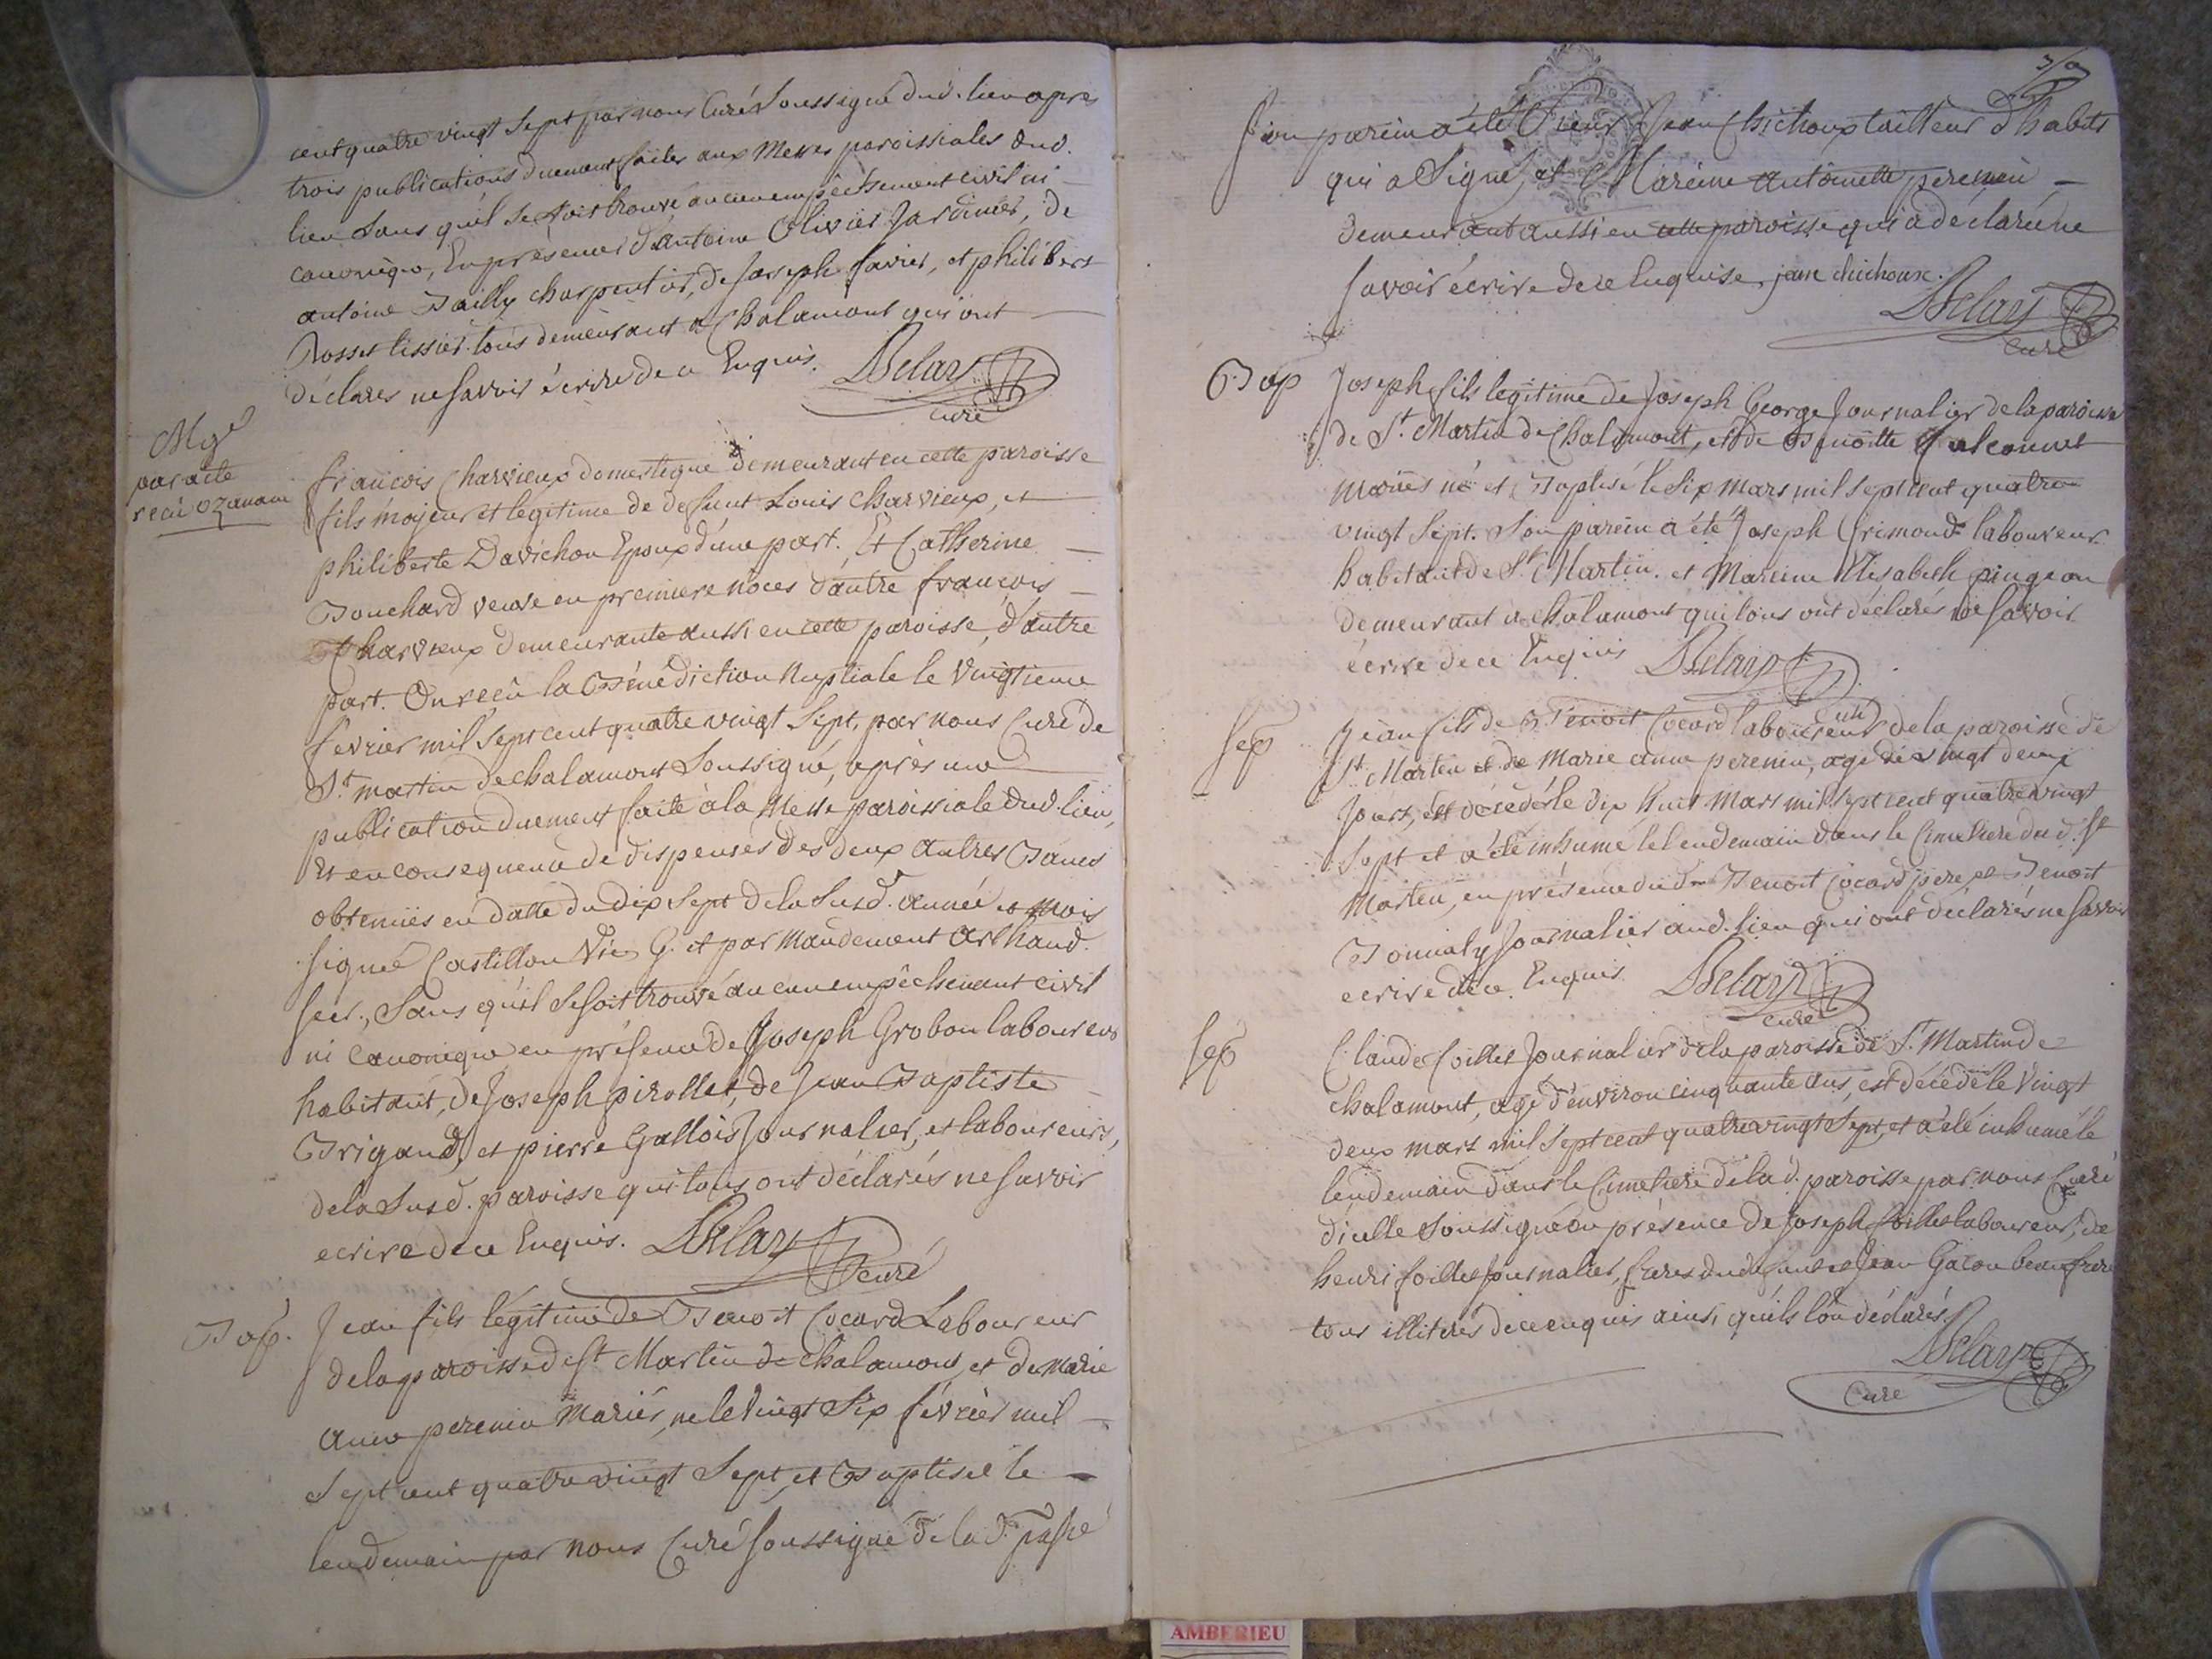 cent quatre vingt Sept par nous Curé Soussigné dud. lieu apres
trois publications duement faites aux Messes paroissiales dud.
lieu Sans qu'il Se soit trouvé aucun empêchement civil ni
canonique, En présence d'Antoine Olivier Jardinier, de
antoine Bailly charpentier, de Joseph favier, et philibert
Rosset tissier tous demeurant a Chalamont qui ont
déclarés ne Savoir écrire de ce Enquis. Delay
curé
Mge
par acte
recu ozanam
francois Charvieux domestique demeurant en cette paroisse
fils majeur et legitime de defunt Louis Charvieux, et
philiberte Davichon Epoux d'une part. Et Catherine
Bouchard veuve en premiere noces d'autre françois
Charvieux demeurante aussi en cette paroisse, d'autre
part. On recû la Bénédiction Nuptiale le Vingtieme
fevrier mil Sept cent quatre vingt Sept, par nous Curé de
St. martin de chalamont Soussigné, après une
publication duement faite à la Messe paroissiale dud. lieu,
Et en consequence de dispenses des deux autres Bancs
obtenües en datte du dix Sept de la Susd. année et mois
signé Castillon Vic. G. et par Mandement Arthaud
Secr., Sans qu'il Se Soit trouvé aucun empêchement civil
ni Canonique en présence de Joseph Grobon laboureur
habitant, de Joseph pirollet, de Jean Baptiste
Brigand, et pierre Gallois Journalier, et laboureurs,
de la Susd. paroisse qui tous ont déclarés ne Savoir
ecrire de ce Enquis. Delay
curé
Bap. Jean fils légitime de Benoit Cocard Laboureur
de la paroisse de St Martin de Chalamont, et de Marie
Anne perenin Mariés, né le Vingt Six février mil
Sept cent quatre vingt Sept, et Baptisé le
lendemain par nous Curé Soussigné de la d. psse
Son parein a été Sieur Jean Chichoux tailleur d'habits
qui a Signé, et Mareine Antoinette perenin
demeurant aussi en cette paroisse qui a déclaré ne
Savoir écrire de ce Enquise. jean chichoux.
Delay
Curé
Bap Joseph fils legitime de Joseph George Journalier de la paroisse
de St. Martin de Chalamont, et de Benoitte falconnet
mariés né et Baptisé le Six mars mil Sept cent quatre
vingt Sept. Son parein a été Joseph Grimond laboureur
habitant de St. Martin. et Mareine Elisabeth pingeon
demeurant a chalamont qui tous ont déclarés ne Savoir
écrire de ce Enquis Delay
Sep Jean fils de Benoit Cocard laboureur de la paroisse de
St. Martin et de Marie anne perenin, agé de vingt deux
Jours, est décédé le dix huit Mars mil Sept cent quatre vingt
Sept et a été inhumé le lendemain dans le Cimetiere du d. St
Martin, en présence dud. Benoit Cocard pere et Benoit
Journalier aud. lieu qui ont déclarés ne Savoir
ecrire de ce Enquis. Delay
curé
Sep Claude foillet Journalier de la paroisse de St. Martin de
chalamont, agé d'environ cinquante ans, est décédé le Vingt
deux mars mil Sept cent quatre vingt Sept, et a été inhumé le
lendemain dans le Cimetiere de la d. paroisse par nous Curé
d'icelle Soussigné en présence de Joseph foillet laboureur, de
henri foillet Journalier, freres du défunt et Jean Gacon beau frere
tous illiterés de ce enquis ainsi qu'ils l'on déclarés.
Delay
Curé
AMBERIEU